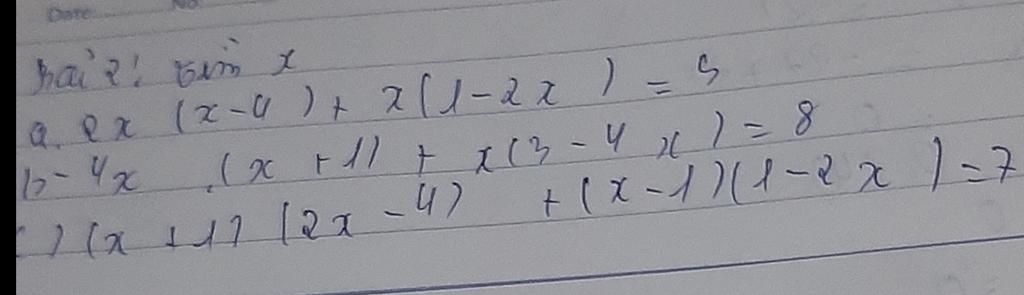 Date No
bài 2: tìm x
a. 2x (x-4) + x(1-2x) = 5
b- 4x .(x + 1) + x(3-4x) = 8
c) (x + 1) (2x - 4) + (x-1)(1-2x) = 7